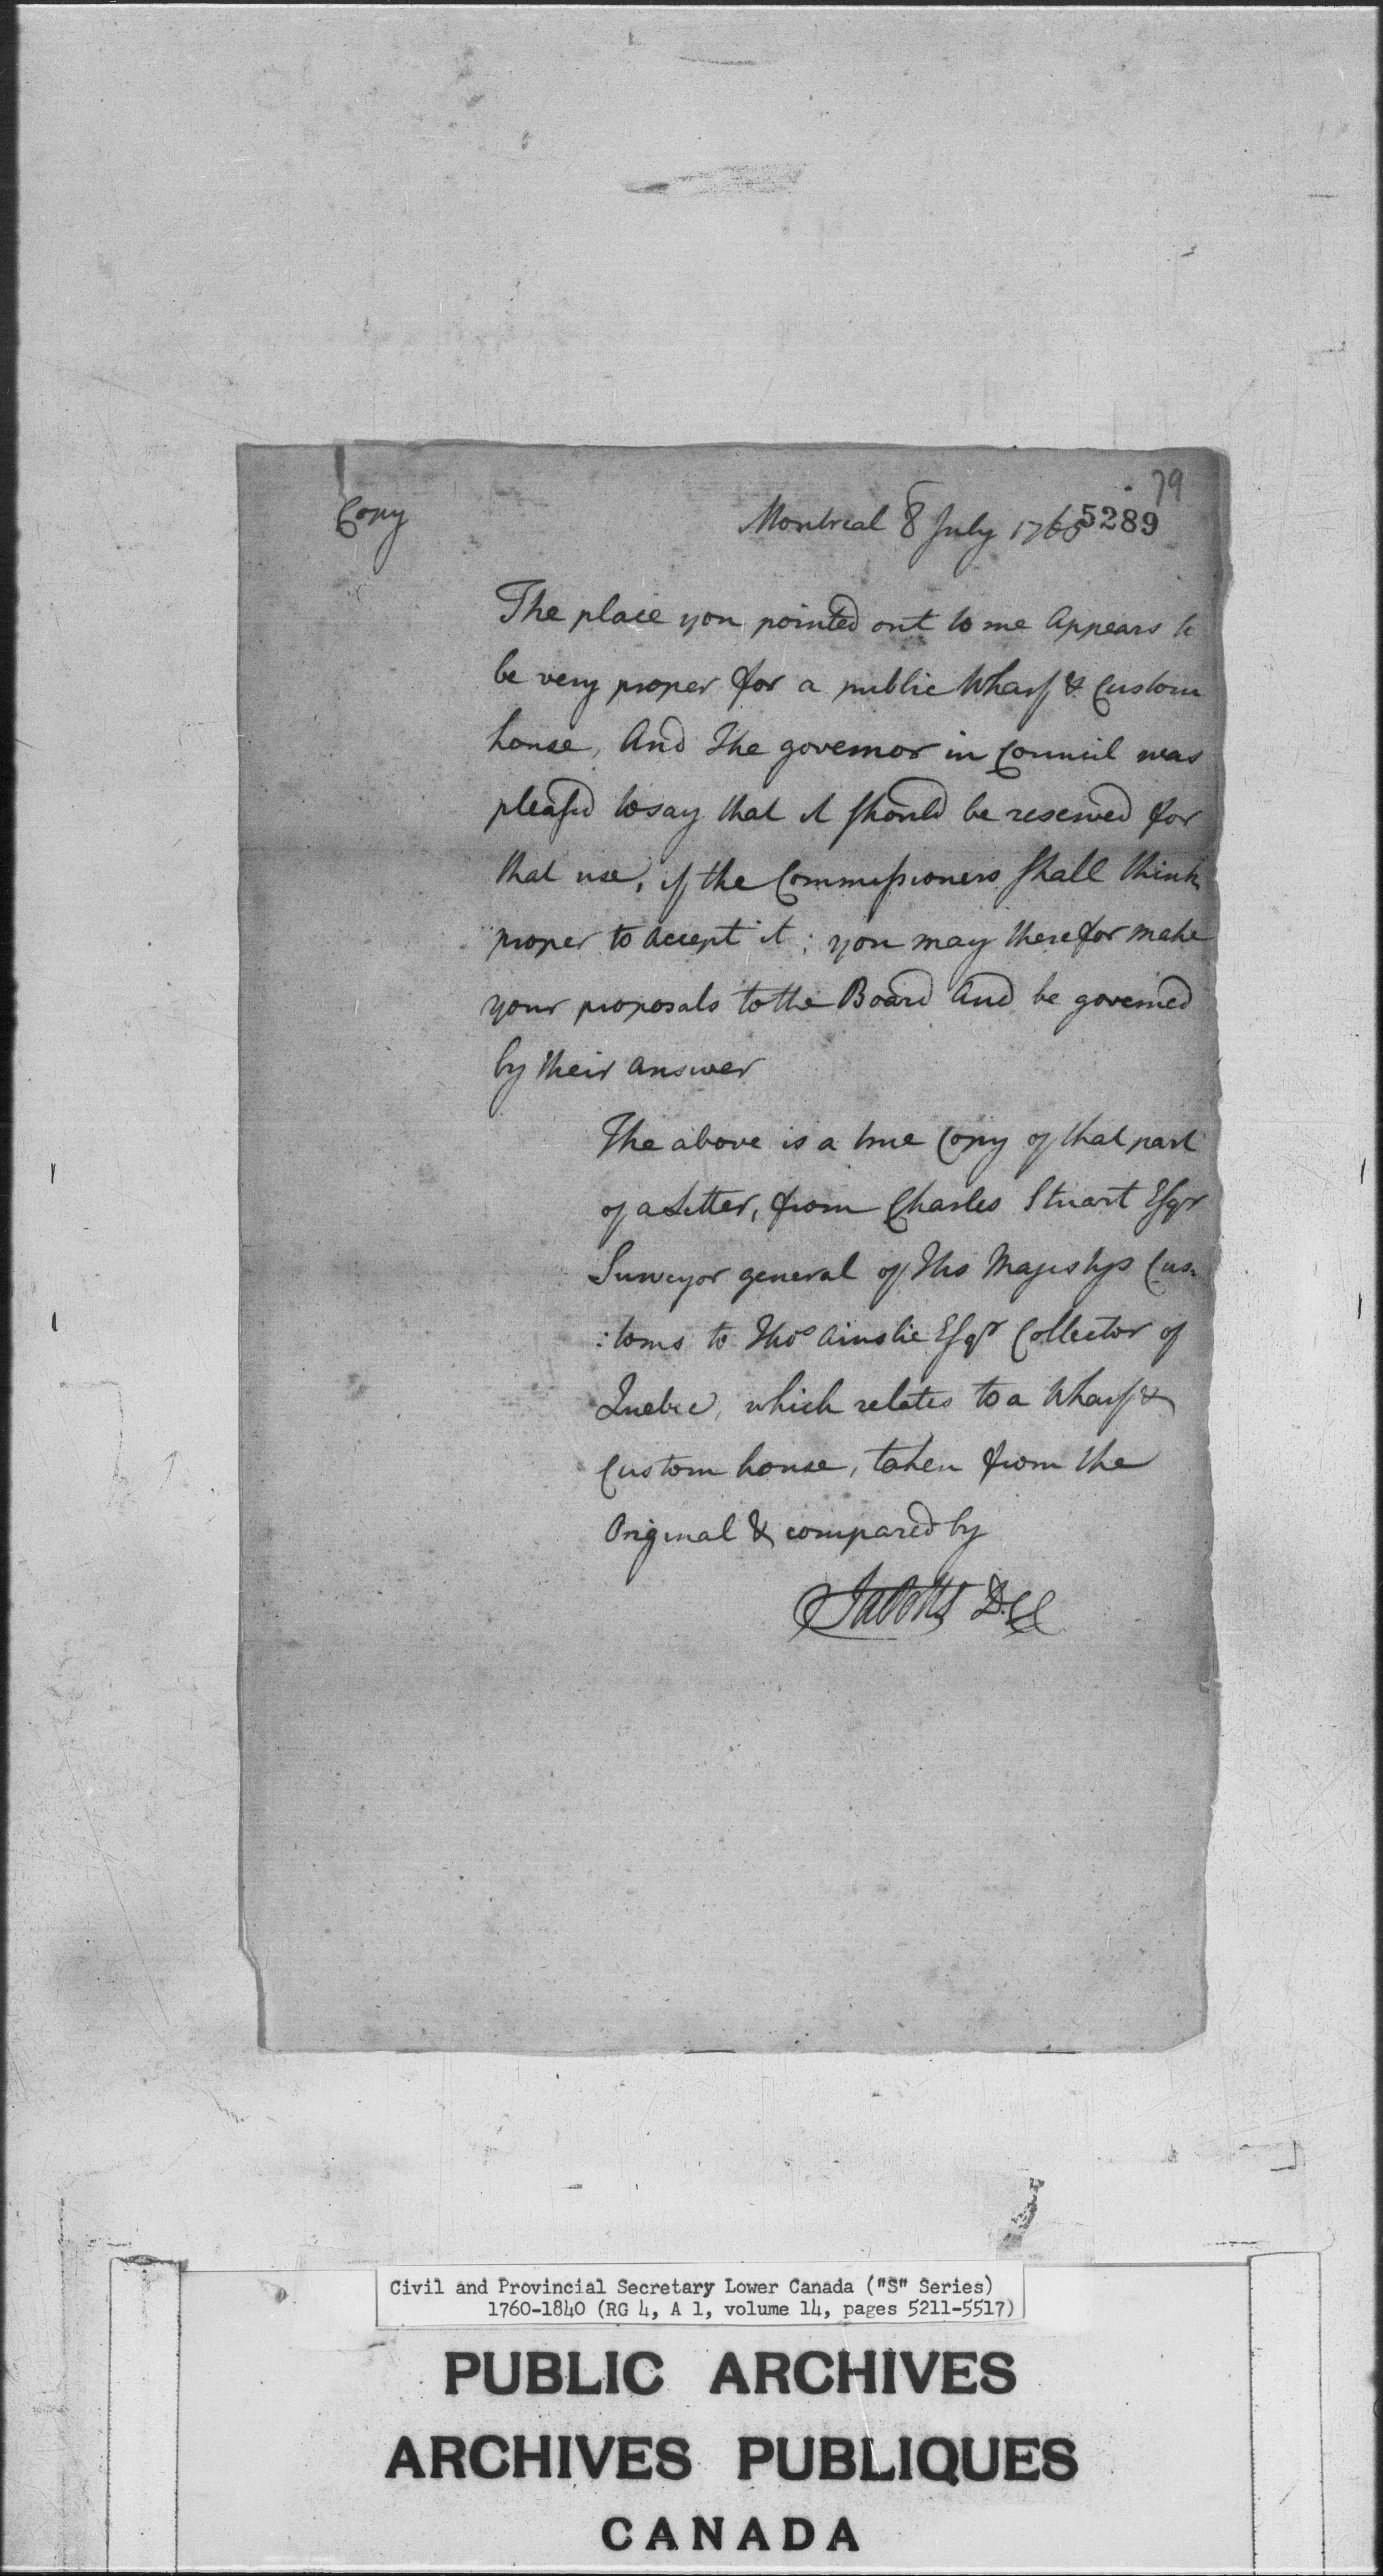 79
Copy
Montreal 8 July 1765
5289
The place you pointed out to me Appears to
be very proper for a public Wharf & Custom
house, And The governor in Council was
pleased to say that it should be reserved for
that use, if the Commissioners shall think
proper to accept it; you may therefor make
your proposals to the Board And be governed
by their answer
The above is a true Copy of that part
of a Letter, from Charles Stuart Esqr
Surveyor general of His Majestys Cus-
:toms to Thos Ainslie Esqr Collector of
Quebec, which relates to a Wharf &
Custom house, taken from the
Original & compared by
JaPotts D.C.C
Civil and Provincial Secretary Lower Canada ("S" Series)
1760-1840 (RG 4, A 1, volume 14, pages 5211-5517)
PUBLIC ARCHIVES
ARCHIVES PUBLIQUES
CANADA